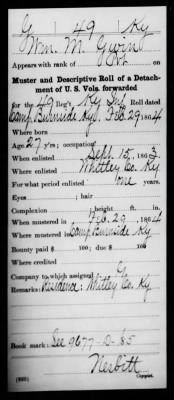 G 49 Ky
Wm. M. Gwin
Appears with rank of Pvt on
Muster and Descriptive Roll of a Detach-
ment of U. S. Vols. forwarded
for the 49 Reg't Ky Inf. Roll dated
Camp Burnside Ky. Feb. 29, 1864
Where born
Age 27 y'rs; occupation
When enlisted Sept. 15, 1863.
Where enlisted Whitley Co. Ky
For what period enlisted one years.
Eyes ; hair
Complexion ; height ft. in.
When mustered in Feb. 29, 1864
Where mustered in Camp Burnside Ky
Bounty paid $ 100; due $ 100
Where credited
Company to which assigned G
Remarks: Residence: Whitley Co. Ky
Book mark: See 9677-D-85
Nesbitt
Copyist.